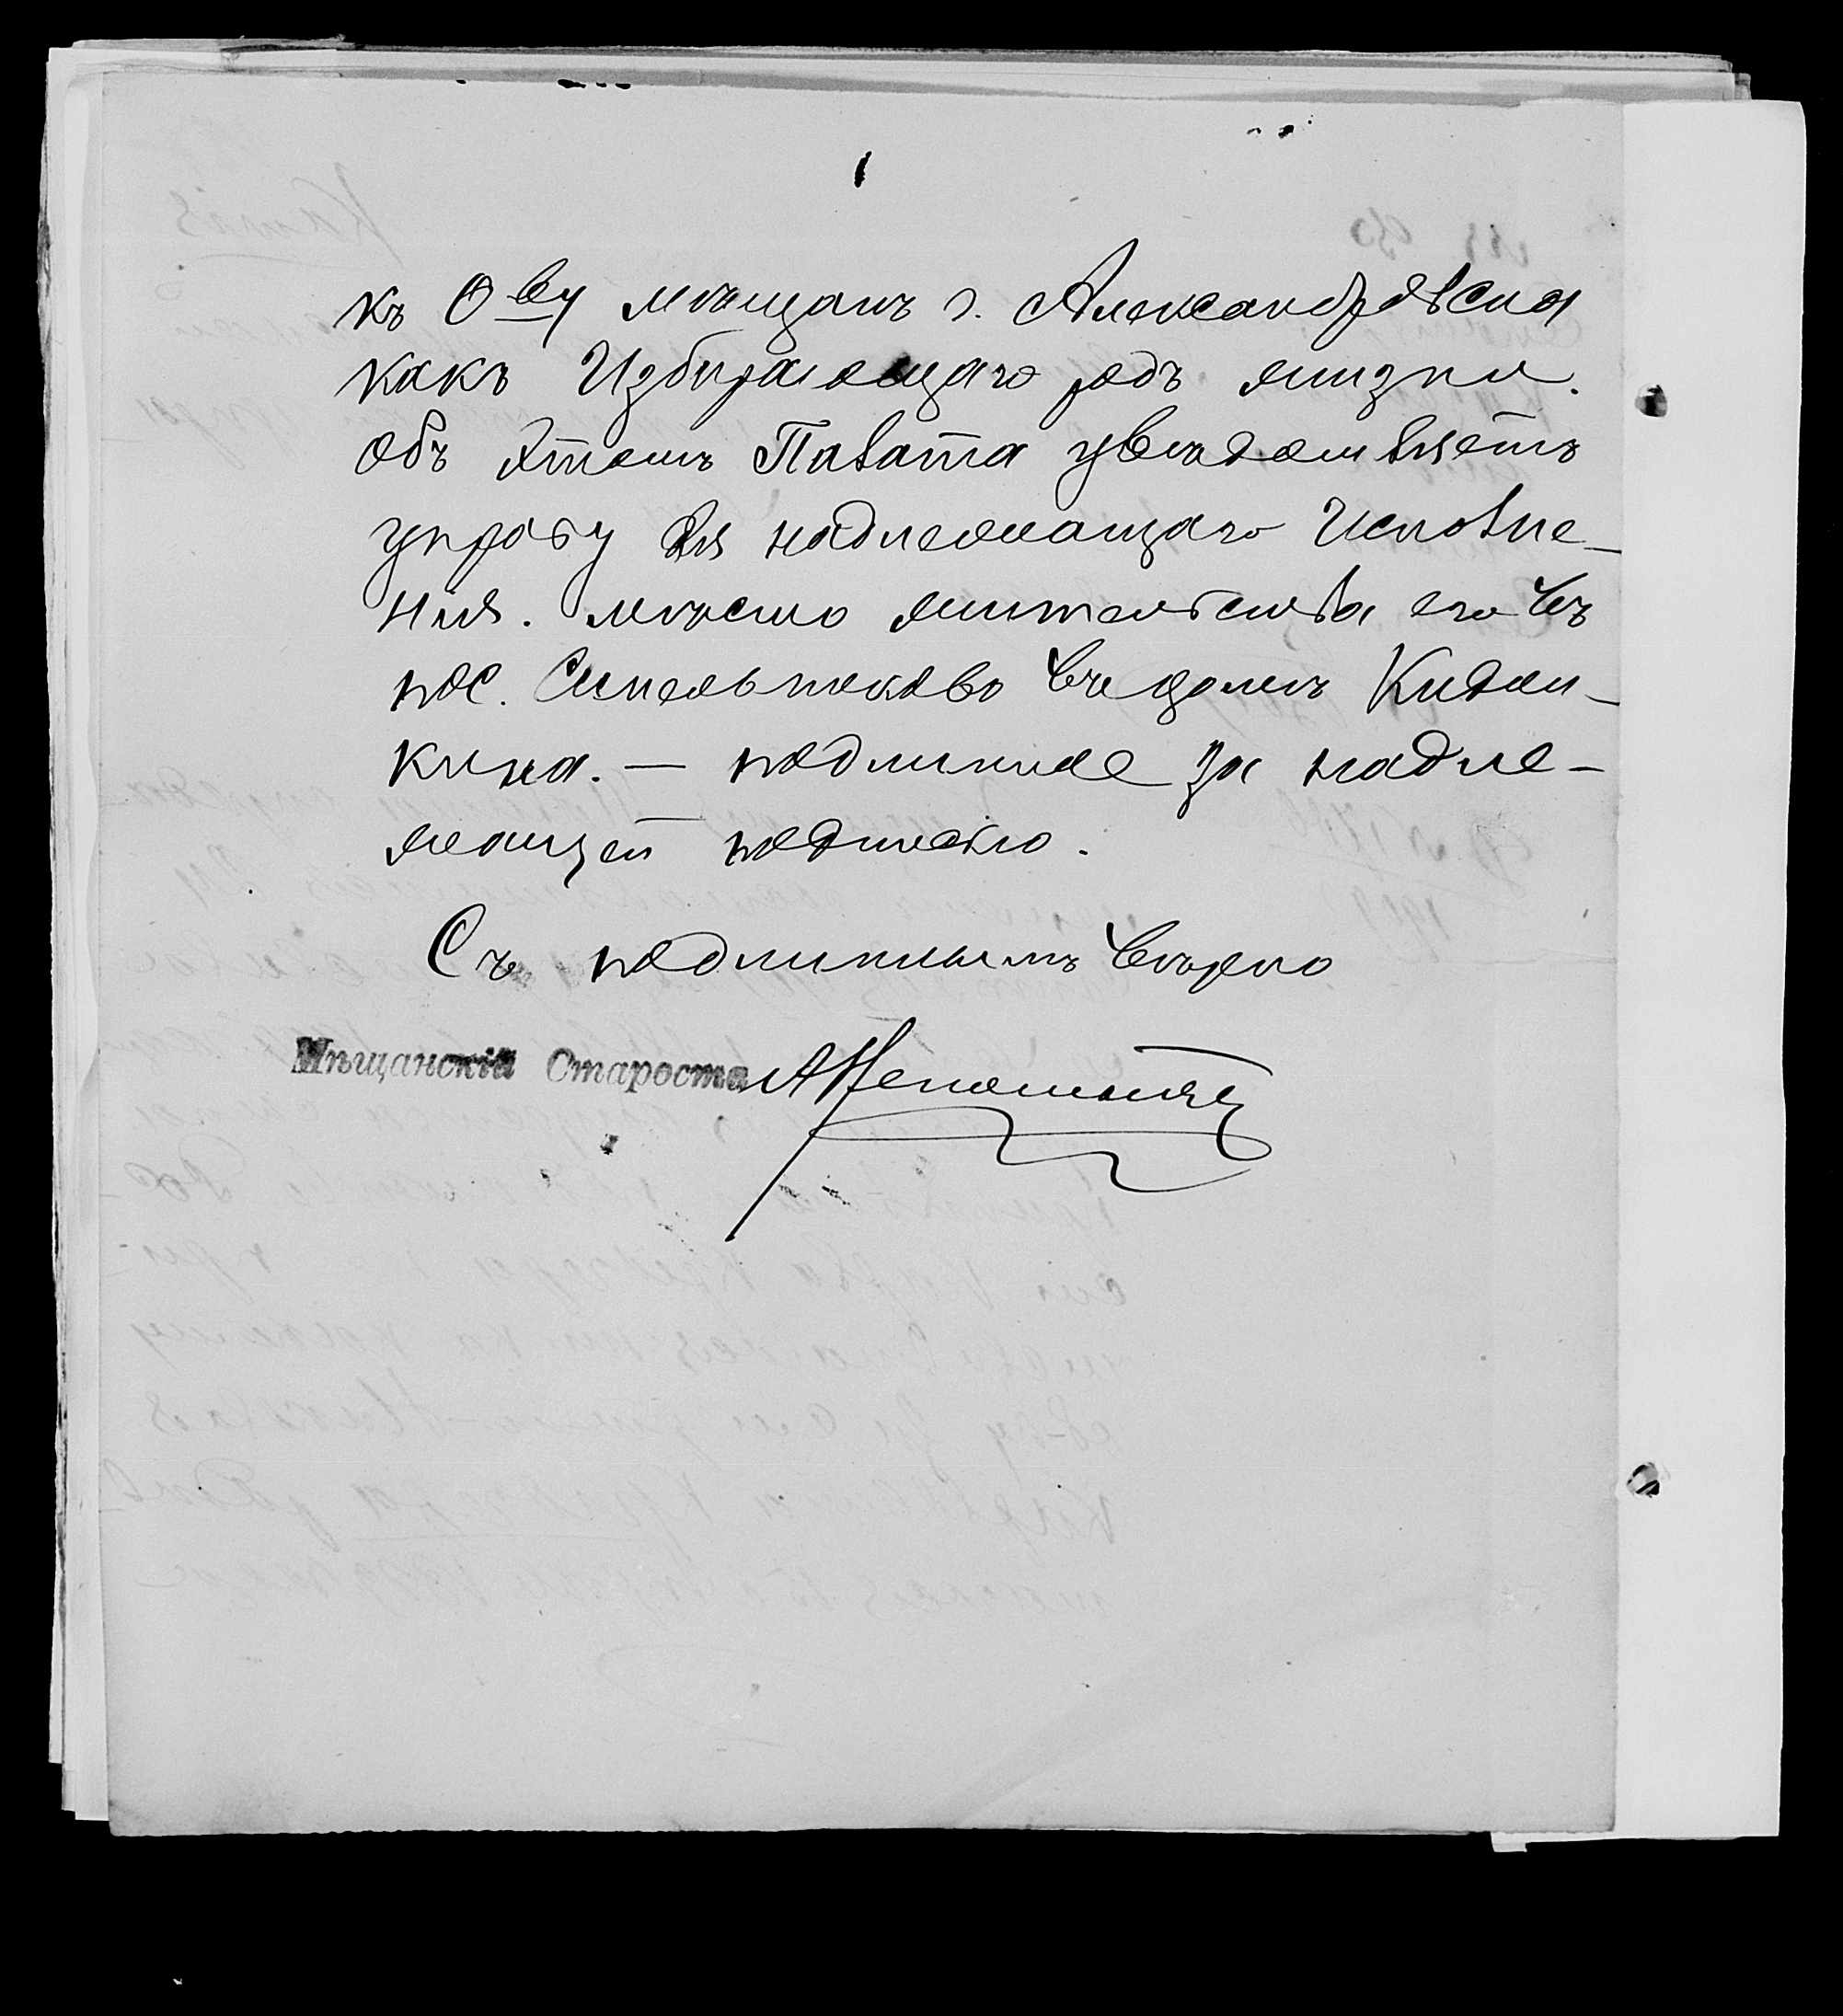 къ О-ву мѣщанъ г. Александровска
какъ Избирающаго родъ жизни.
Объ этомъ Палата увѣдомляетъ
управу для надлежащаго Исполне-
нія. Мѣсто жительства его въ
пос. Синельниково въ домѣ
кина. — подлинное за надле-
жащей подписью.
Съ подлиннымъ вѣрно
Мѣщанскій Староста